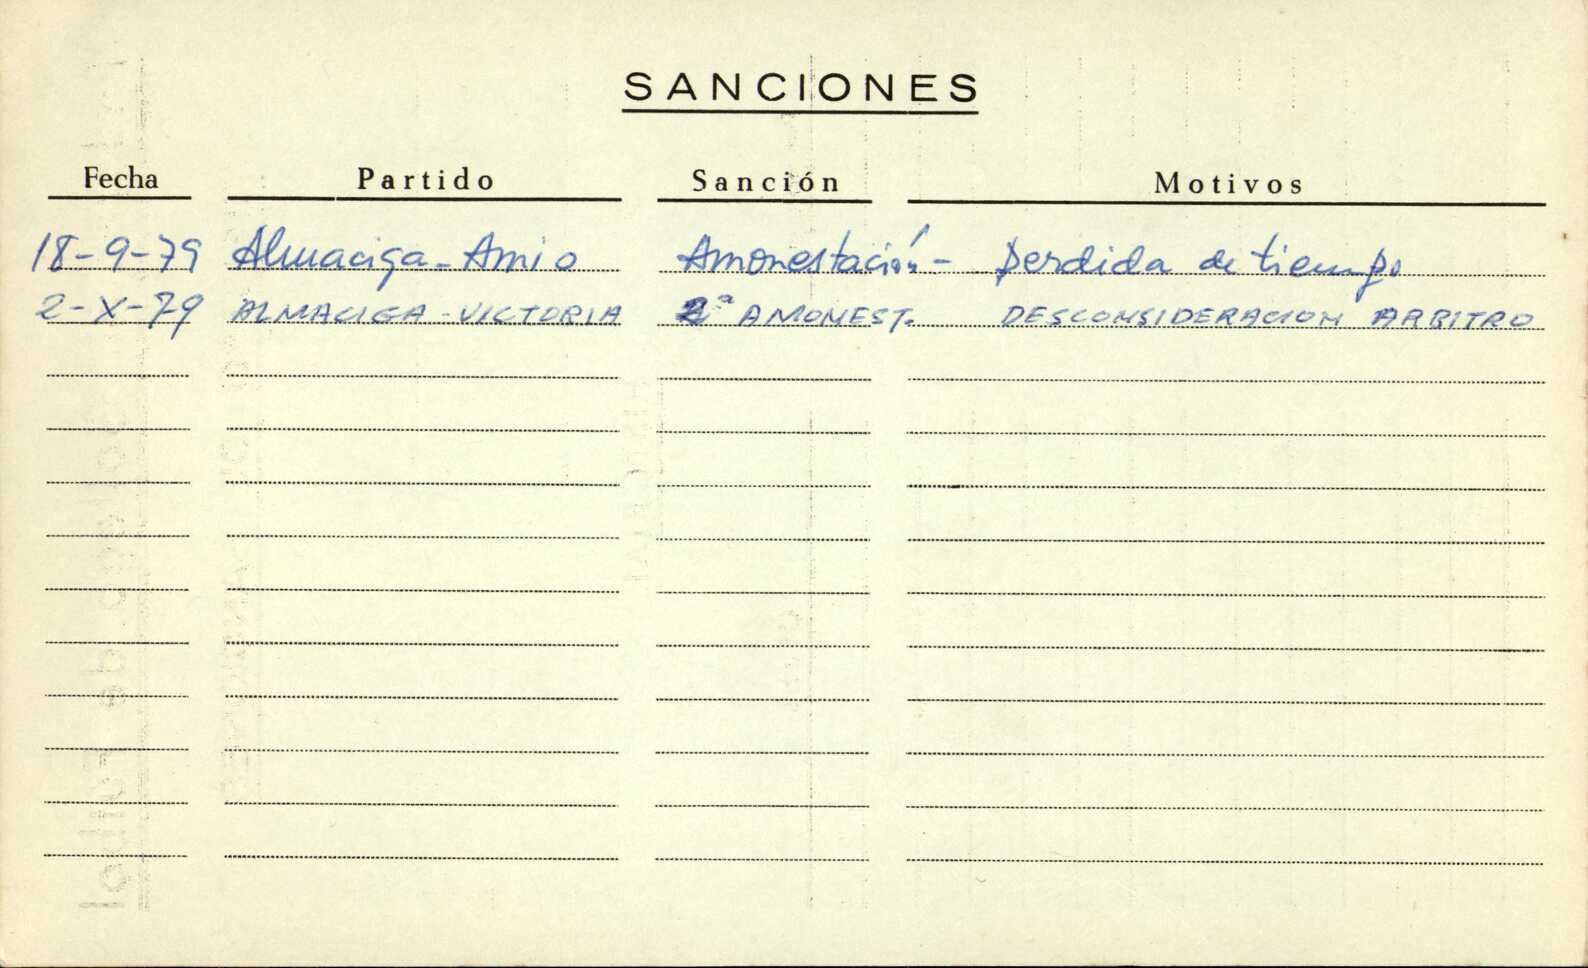 SANCIONES
Fecha Partido Sanción Motivos
18-9-79 Almaciga-Amio Amonestación- Perdida de tiempo
2-X-79 ALMACIGA-VICTORIA 2ª AMONEST. DESCONSIDERACION ARBITRO